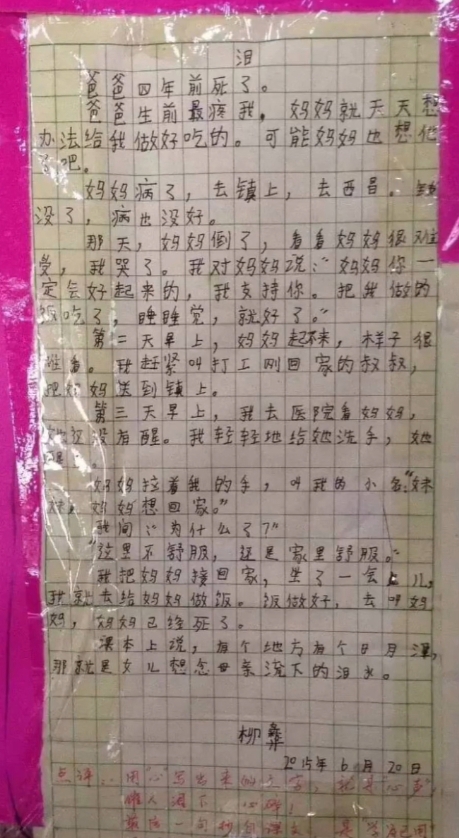 泪
爸爸四年前死了。
爸爸生前最疼我，妈妈就天天想
办法给我做好吃的。可能妈妈也想他
了吧。
妈妈病了，去镇上，去西昌。钱
没了，病也没好。
那天，妈妈倒了，看看妈妈很难
受，我哭了。我对妈妈说：“妈妈你一
定会好起来的，我支持你。把我做的
饭吃了，睡睡觉，就好了。”
第二天早上，妈妈起不来，样子很
难看。我赶紧叫打工刚回家的叔叔，
把妈妈送到镇上。
第三天早上，我去医院看妈妈，
她还没有醒。我轻轻地给她洗手，她
醒
妈妈拉着我的手，叫我的小名：“妹
妹，妈妈想回家。”
我问：“为什么了？”
“这里不舒服，还是家里舒服。”
我把妈妈接回家，坐了一会儿，
我就去给妈妈做饭。饭做好，去叫妈
妈，妈妈已经死了。
课本上说，有个地方有个日月潭，
那就是女儿想念母亲流下的泪水。
柳彝
2015年6月20日
点评：用“心”写出来的文字，就是“心声”，
催人泪下